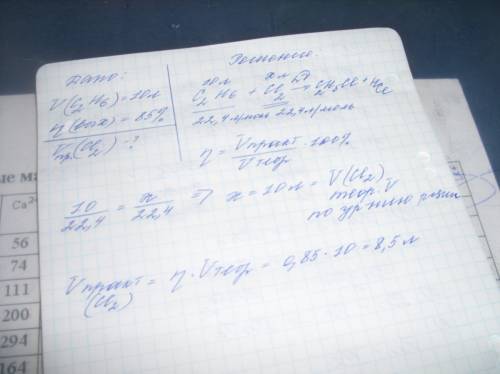 Дано:
V(C2H6)=10л
η(вых)=85%
Vпр.(Cl2)-?
Решение.
10л xл
C2H6 + Cl2 → C2H5Cl + HCl
22,4л/моль 22,4л/моль
η = Vпракт/Vтеор · 100%
10/22,4 = x/22,4 => x = 10л = V(Cl2)
теор. V
по ур-нию
Vпракт = η · Vтеор = 0,85 · 10 = 8,5л
(Cl2)
Ca2
56
74
111
200
294
164